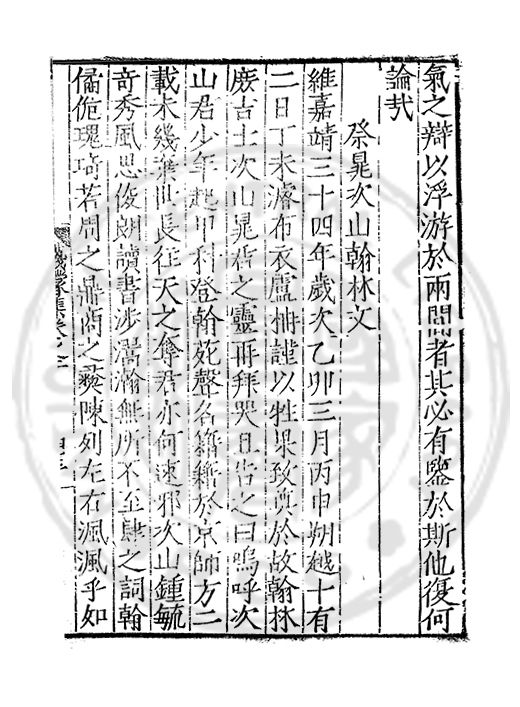 氣之辯以浮游於兩間者其必有鑒於斯他復何
論哉
祭晁次山翰林文
維嘉靖三十四年歲次乙卯三月丙申朔越十有
二日丁未濬布衣盧柟謹以牲果致奠於故翰林
庶吉士次山晁君之靈再拜哭且告之曰嗚呼次
山君少年起甲科登翰苑聲名籍籍於京師方二
載未幾棄世長往天之奪君亦何速邪次山鍾毓
奇秀風思俊朗讀書涉瀚無所不至肆之詞翰
僪佹瑰琦若周之鼎商之彝陳列左右渢渢乎如
集卷之三